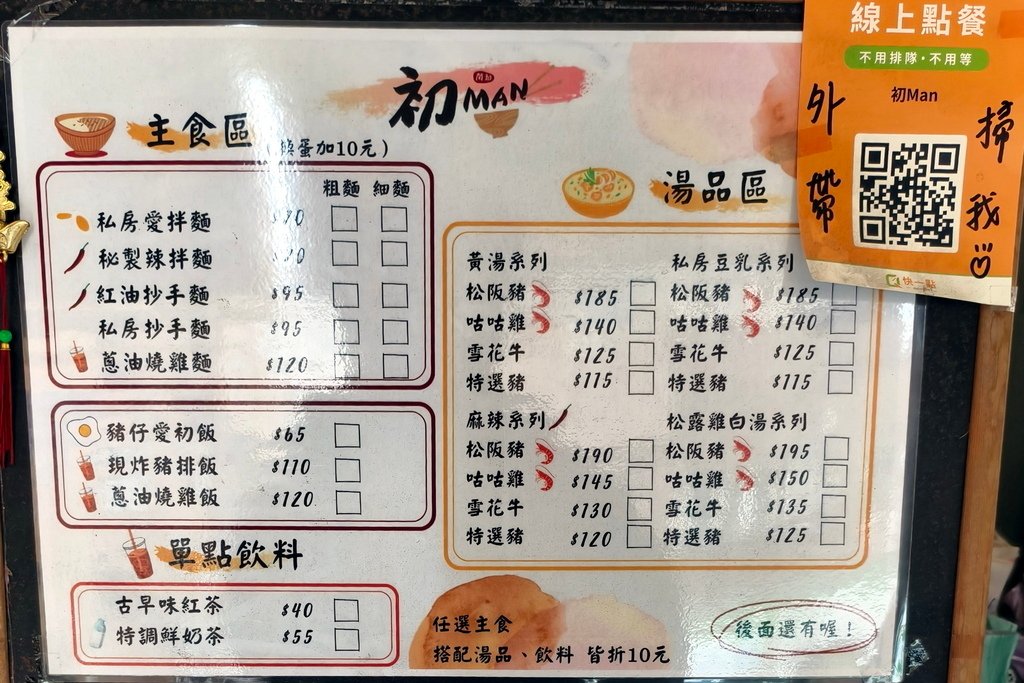 初MAN
主食區
蛋加10元）
粗麵 細麵
私房愛拌麵
秘製辣拌麵
紅油抄手麵 $95
私房抄手麵 $95
蔥油燒雞麵 $120
豬仔愛初飯 $65
現炸豬排飯 $110
蔥油燒雞飯 $120
單點飲料
古早味紅茶 $40
特調鮮奶茶 $55
湯品區
黃湯系列
松阪豬 $185
咕咕雞 $140
雪花牛 $125
特選豬 $115
私房豆乳系列
松阪豬 $185
咕咕雞 $140
雪花牛 $125
特選豬 $115
麻辣系列
松阪豬 $190
咕咕雞 $145
雪花牛 $130
特選豬 $120
松露雞白湯系列
松阪豬 $195
咕咕雞 $150
雪花牛 $135
特選豬 $125
任選主食
搭配湯品、飲料 皆折10元
後面還有喔！
線上點餐
不用排隊・不用等
初Man
外帶
掃我
快一點